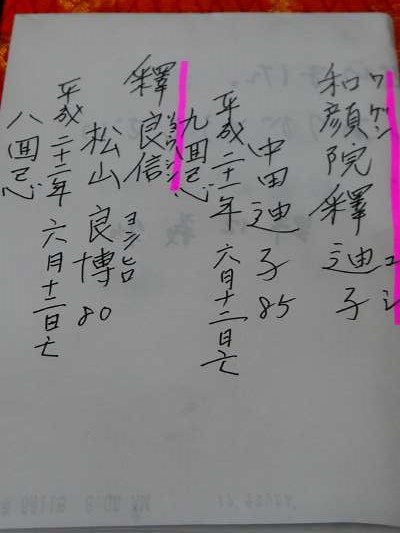 ワゲン
和顔院釋迪子
ユシ
中田迪子 85
平成二十一年六月十二日亡
九回忌
リョウシン
釋良信
ヨシヒロ
松山良博 80
平成二十二年六月十二日亡
八回忌